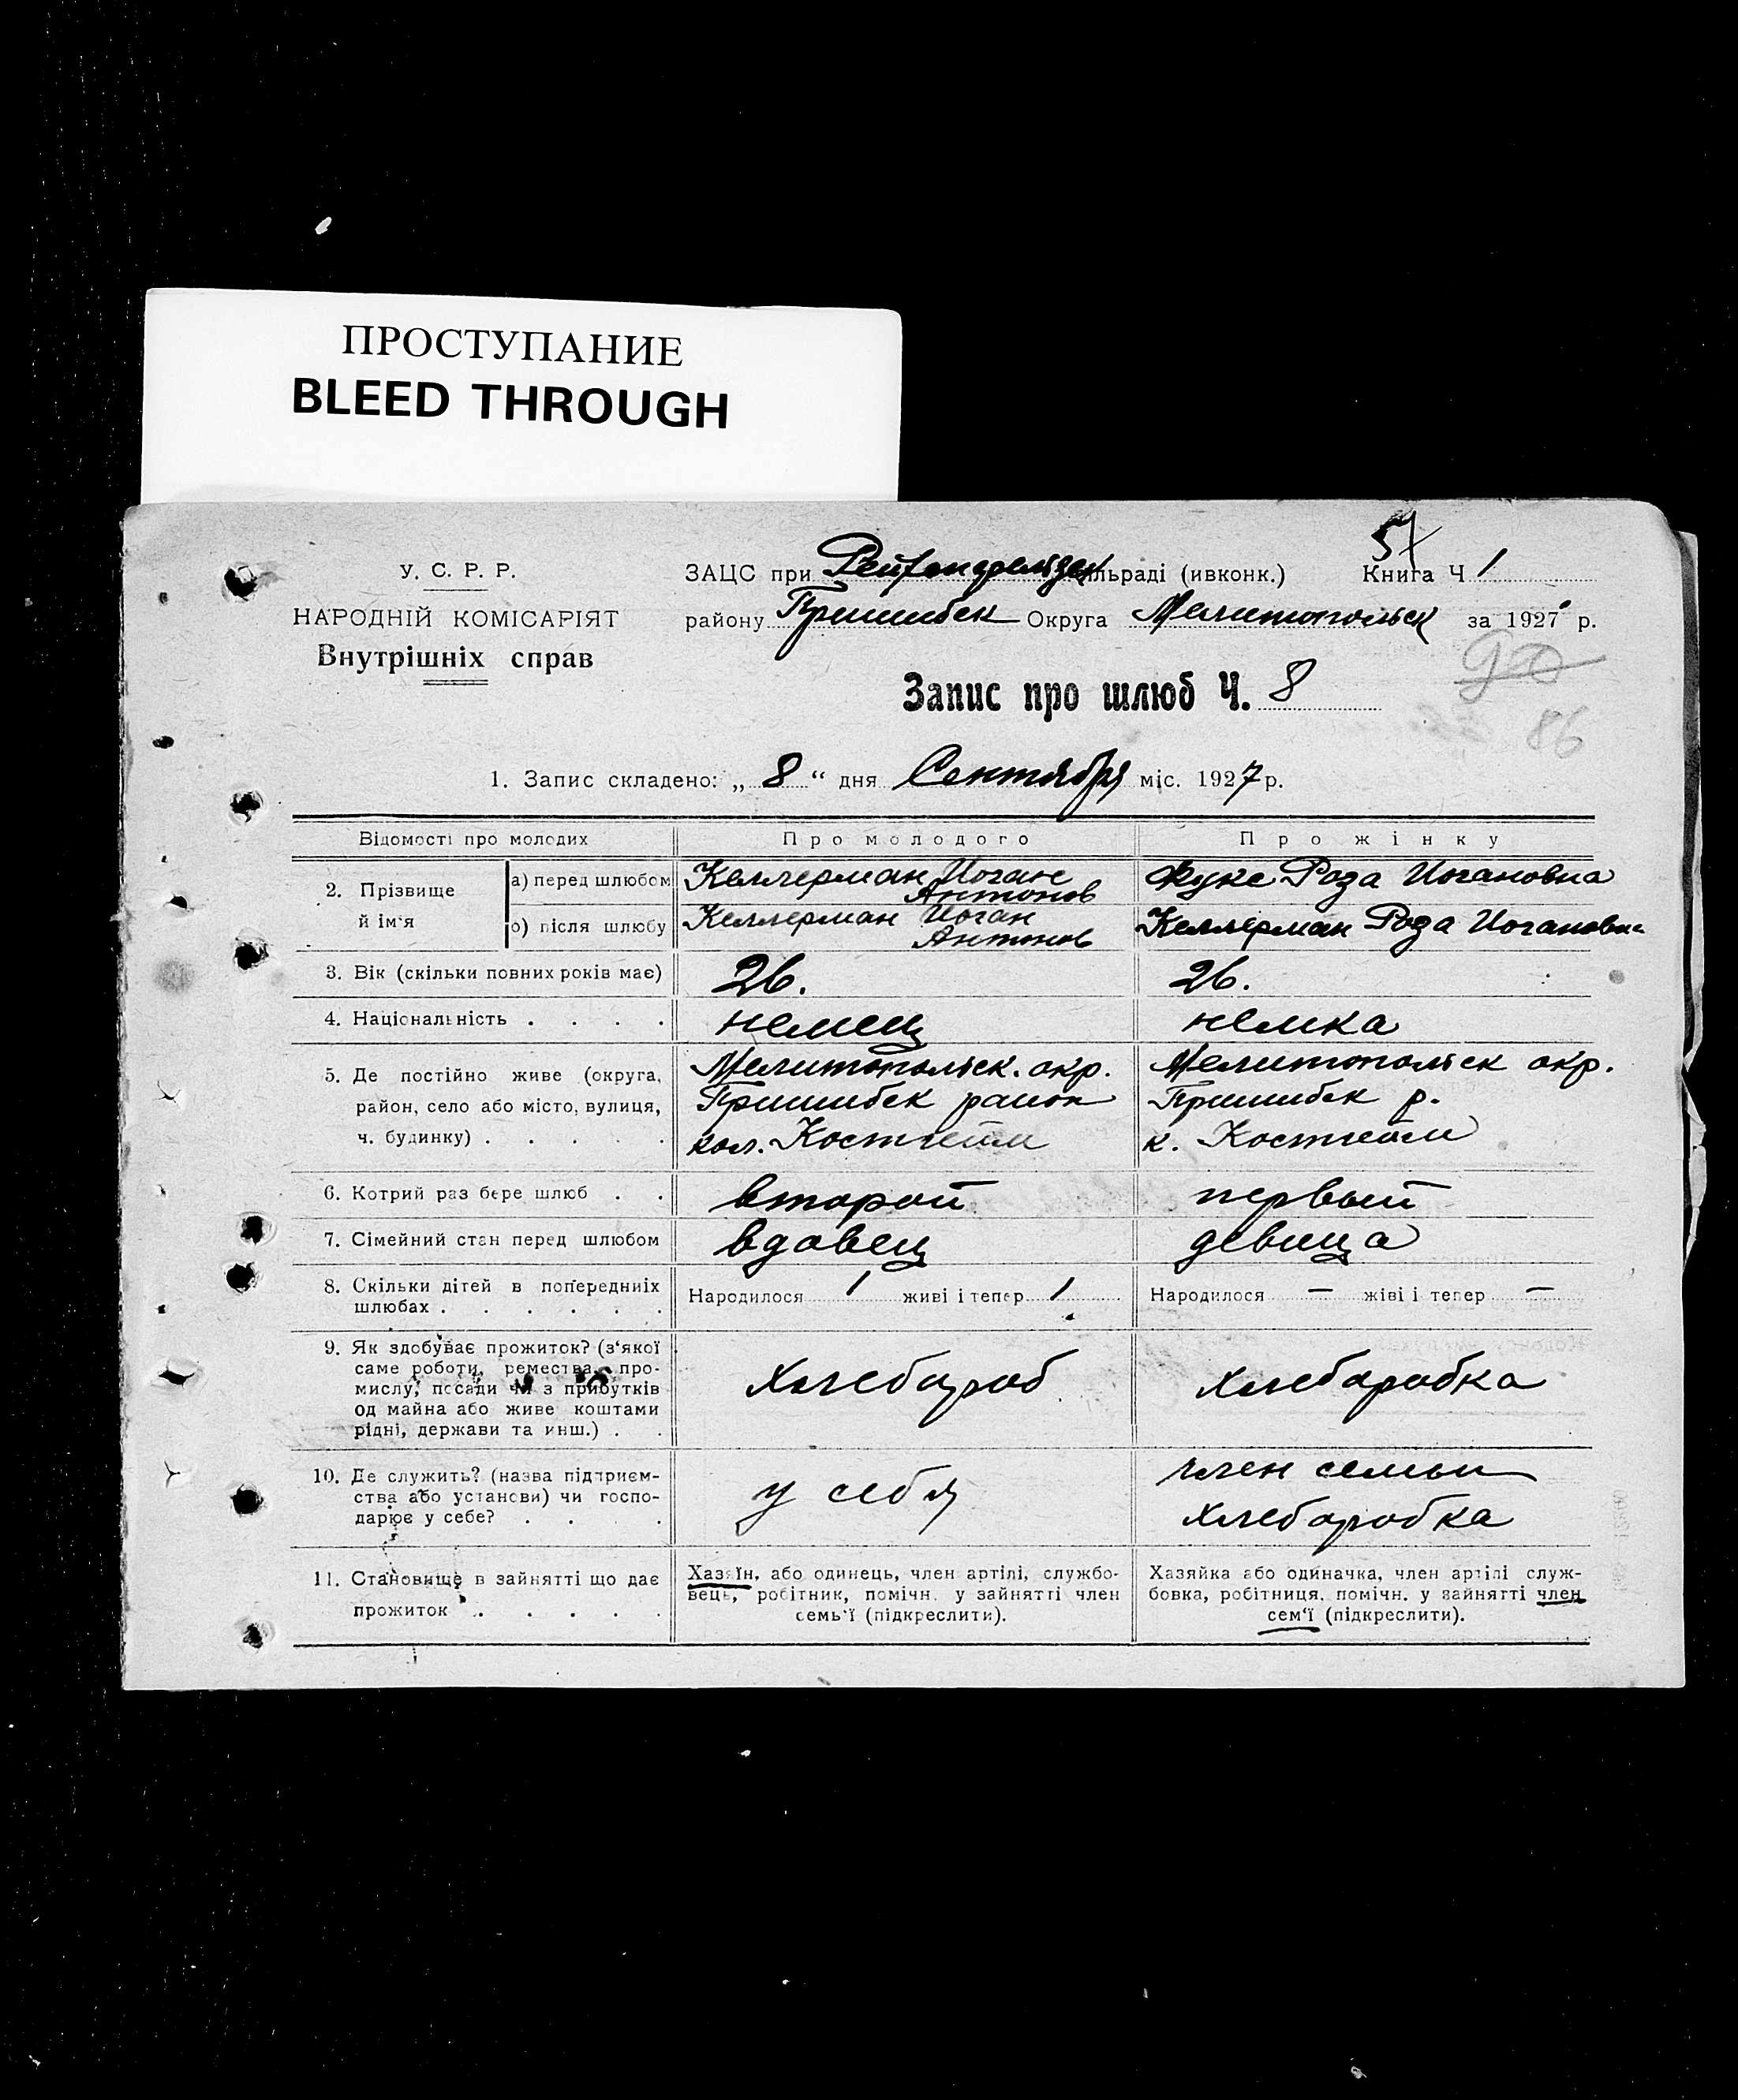 ПРОСТУПАНИЕ
BLEED THROUGH
57
У. С. Р. Р.
НАРОДНІЙ КОМІСАРІЯТ
Внутрішніх справ
ЗАЦС при сільраді (ивконк.) Книга Ч 1
району Пришибск Округа Мелитопольск за 1927 р.
90
Запис про шлюб Ч. 8
86
1. Запис складено: „ 8 “ дня Сентября міс. 1927 р.
Відомості про молодих Про молодого Про жінку
2. Прізвище й ім'я а) перед шлюбом Келлерман Иоган Антонов Фукс Роза Иогановна
о) після шлюбу Келлерман Иоган Антонов Келлерман Роза Иогановна
3. Вік (скільки повних років має) 26. 26.
4. Національність . . . . немец немка
5. Де постійно живе (округа, Мелитопольск. окр. Мелитопольск окр.
район, село або місто, вулиця, Пришибск район Пришибск р.
ч. будинку) . . . . . кол. Костгейм к. Костгейм
6. Котрий раз бере шлюб . . второй первый
7. Сімейний стан перед шлюбом вдовец девица
8. Скільки дітей в попередніх
шлюбах . . . . . . Народилося 1 живі і тепер 1 Народилося — жіві і тепер —
9. Як здобуває прожиток? (з'якої
саме роботи, ремества, про-
мислу, посади чи з прибутків хлебороб хлеборобка
од майна або живе коштами
рідні, держави та инш.) . .
10. Де служить? (назва підприєм- член семьи
ства або установи) чи госпо- у себя
дарює у себе? . . . . хлеборобка
11. Становище в зайнятті що дає Хазяїн, або одинець, член артілі, службо- Хазяйка або одиначка, член артілі служ-
вець, робітник, помічн. у зайнятті член бовка, робітниця, помічн. у зайнятті член
прожиток . . . . . семь'ї (підкреслити). сем'ї (підкреслити).